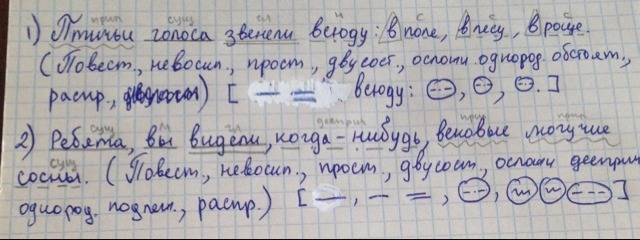 прил сущ гл н с с с
1) Птичьи голоса звенели всюду: в поле, в лесу, в роще.
(Повест., невоскл., прост., двусост., ослож. однород. обстоят.,
распр.,) [ всюду: , , .]
сущ м гл дееприч прил прил
2) Ребята, вы видели, когда-нибудь, вековые могучие
сущ
сосны. (Повест., невоскл., прост., двусост., ослож дееприч
однород. подлеж., распр.) [ , , , ]